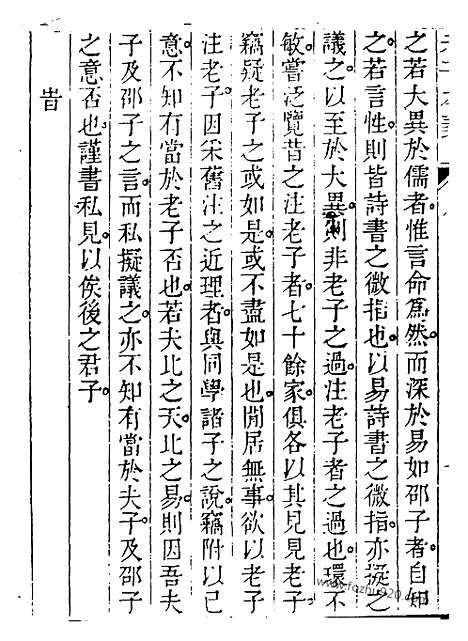 之若大異於儒者惟言命爲然而深於易如邵子者自知
之若言性則皆詩書之微指也以易詩書之微指亦擬之
議之以至於大異則非老子之過注老子者之過也環不
敏嘗泛覽昔之注老子者七十餘家俱各以其見見老子
竊疑老子之或如是或不盡如是也閒居無事欲以老子
注老子因采舊注之近理者與同學諸子之說竊附以己
意不知有當於老子否也若夫比之天比之易則因吾夫
子及邵子之言而私擬議之亦不知有當於夫子及邵子
之意否也謹書私見以俟後之君子
旹
www.fozhu920.com